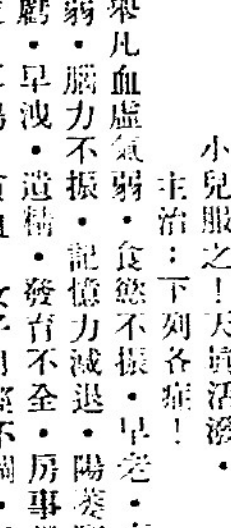 小兒服之！天眞活潑・
主治：下列各症！
舉凡血虛氣弱・食慾不振・早老・
弱・腦力不振・記憶力減退・陽萎
虧・早洩・遺精・發育不全・房事
不調